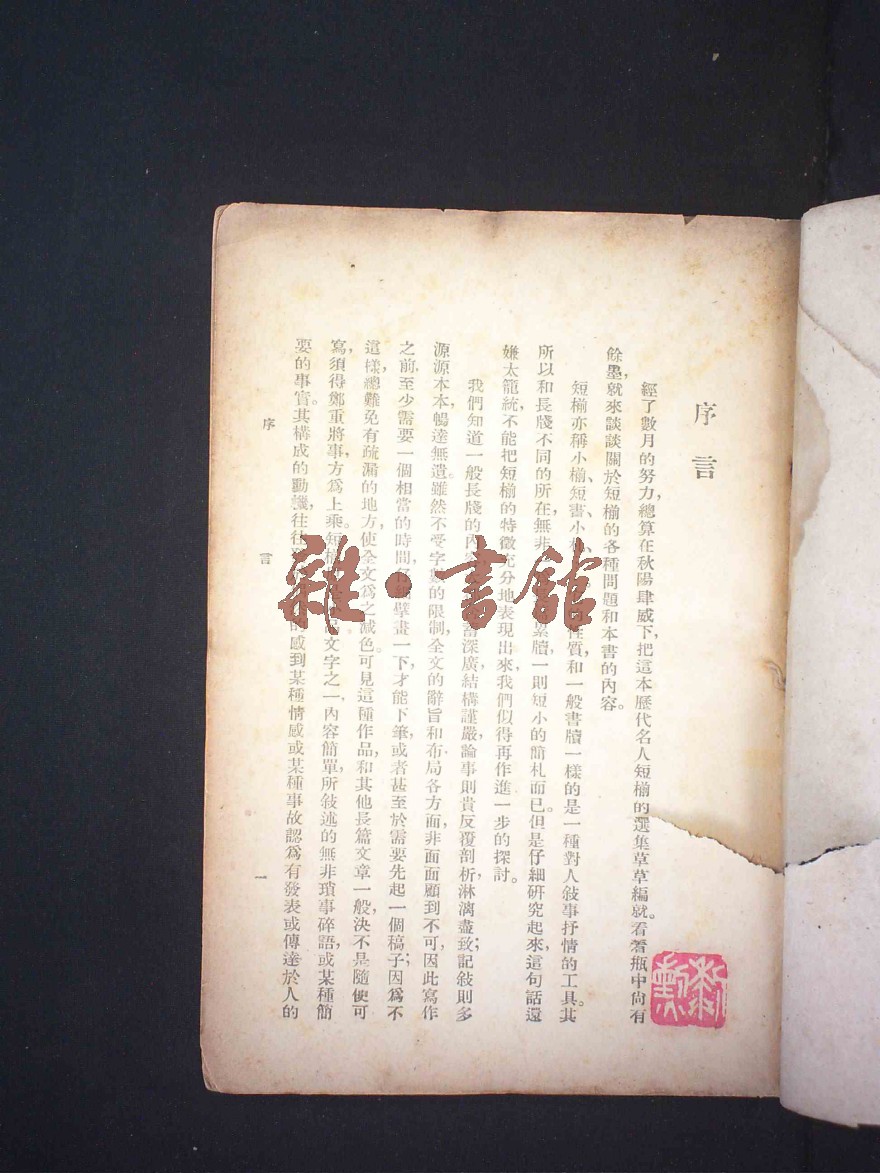 序言
經了數月的努力，總算在秋陽肆威下，把這本歷代名人短椾的選集草草編就。看着瓶中尙有
餘墨，就來談談關於短椾的各種問題和本書的內容。
短椾亦稱小椾、短書、小性質，和一般書牘一樣的是一種對人敍事抒情的工具。其
所以和長牋不同的所在，無非累牘，一則短小的簡札而已。但是仔細硏究起來，這句話還
嫌太籠統，不能把短椾的特徵充分地表現出來，我們似得再作進一步的探討。
我們知道一般長牋的內深廣，結構謹嚴，論事則貴反覆剖析，淋漓盡致；記敍則多
源源本本，暢達無遺。雖然不受字數的限制，全文的辭旨和布局各方面，非面面顧到不可，因此寫作
之前，至少需要一個相當的時間，仔擘畫一下，才能下筆，或者甚至於需要先起一個稿子；因爲不
這樣，總難免有疏漏的地方，使全文爲之減色。可見這種作品，和其他長篇文章一般，決不是隨便可
寫，須得鄭重將事，方爲上乘。短文字之一，內容簡單，所敍述的無非瑣事碎語，或某種簡
要的事實。其構成的動機，往往感到某種情感或某種事故認爲有發表或傳達於人的
序言
一
雜·書館